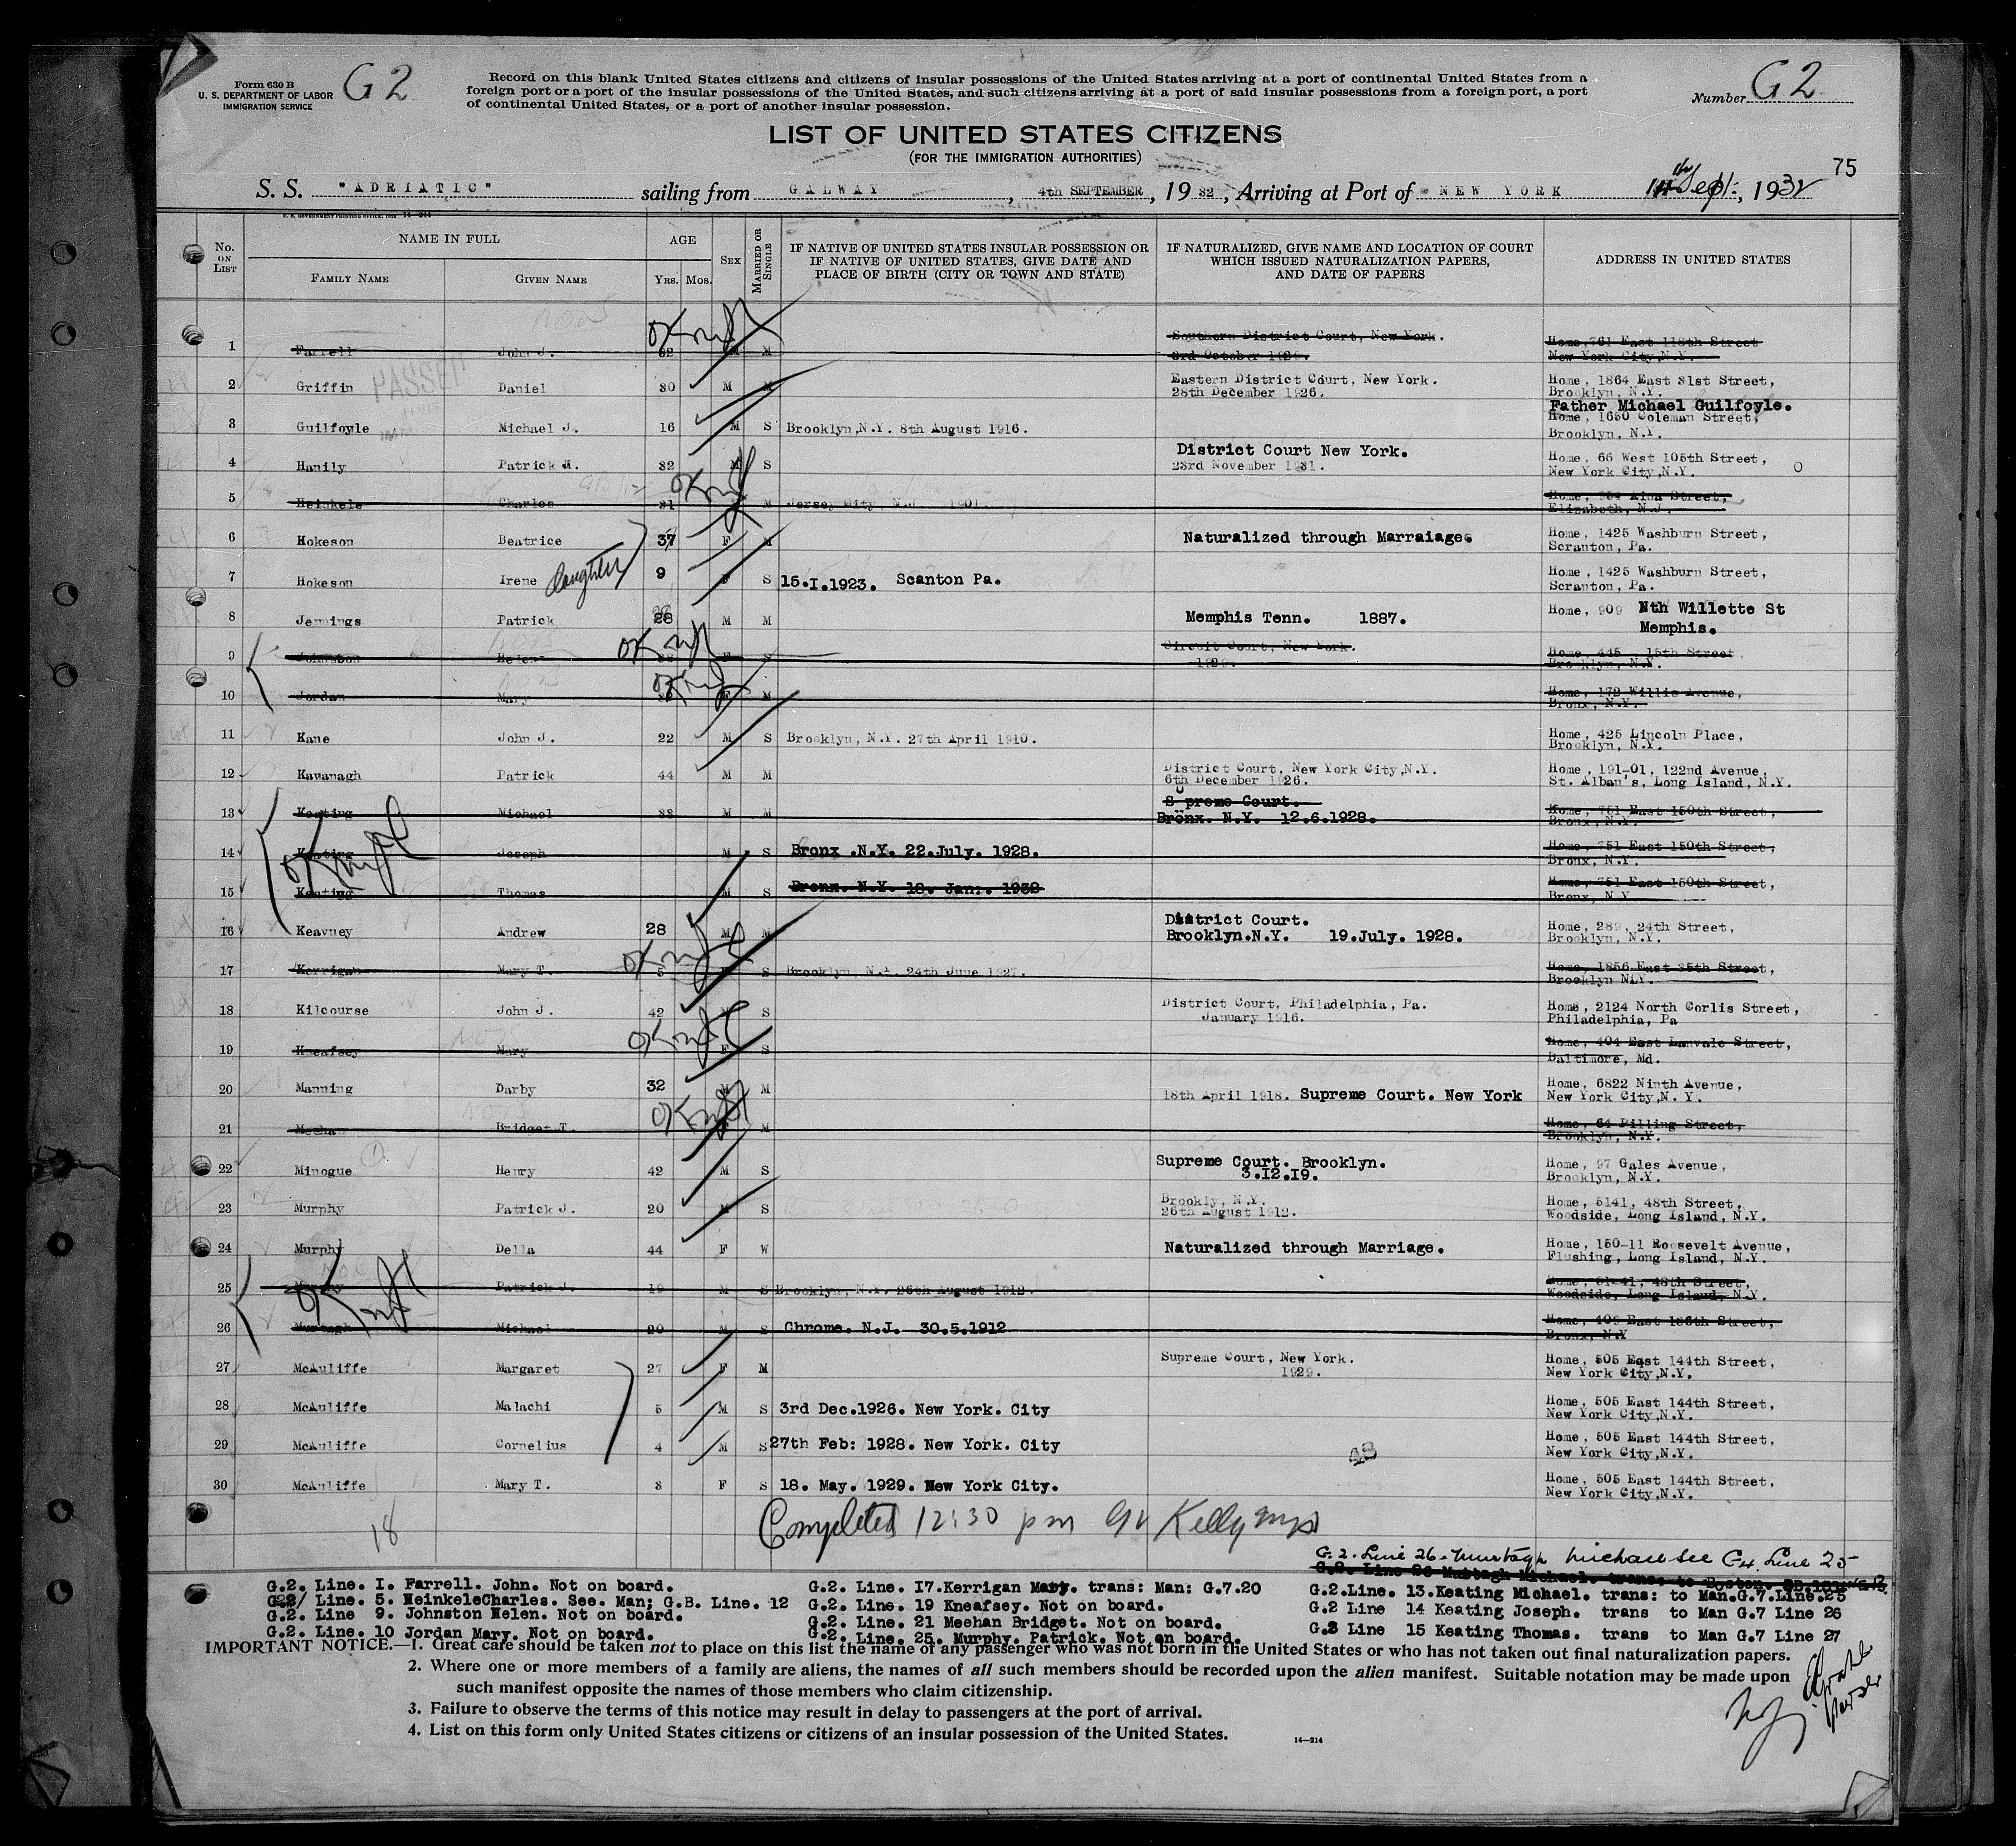 Form 630 B
U. S. DEPARTMENT OF LABOR
IMMIGRATION SERVICE
G2
Record on this blank United States citizens and citizens of insular possessions of the United States arriving at a port of continental United States from a
foreign port or a port of the insular possessions of the United States, and such citizens arriving at a port of said insular possessions from a foreign port, a port
of continental United States, or a port of another insular possession.
Number G2
LIST OF UNITED STATES CITIZENS
(FOR THE IMMIGRATION AUTHORITIES)
75
S. S. "ADRIATIC" sailing from GALWAY, 4th SEPTEMBER, 1932, Arriving at Port of NEW YORK Sept:, 1932
No. ON LIST
NAME IN FULL
FAMILY NAME
GIVEN NAME
AGE
YRS. MOS.
SEX
MARRIED OR SINGLE
IF NATIVE OF UNITED STATES INSULAR POSSESSION OR
IF NATIVE OF UNITED STATES, GIVE DATE AND
PLACE OF BIRTH (CITY OR TOWN AND STATE)
IF NATURALIZED, GIVE NAME AND LOCATION OF COURT
WHICH ISSUED NATURALIZATION PAPERS,
AND DATE OF PAPERS
ADDRESS IN UNITED STATES
1 Farrell John J. 32 M M Southern District Court, New York. Home, 761 East 118th Street
3rd October New York City, N.Y.
PASSED
2 Griffin Daniel 30 M M Eastern District Court, New York. Home, 1864 East 31st Street,
28th December 1926. Brooklyn, N.Y.
Father Michael Guilfoyle.
3 Guilfoyle Michael J. 16 M S Brooklyn,N.Y. 8th August 1916. Home, 1650 Coleman Street,
Brooklyn, N.Y.
4 Hanily Patrick H. 32 M S District Court New York. Home, 66 West 105th Street,
23rd November 1931. New York City,N.Y.
5 Heinkele Charles 31 M Jersey City, N.J. 1901. Home, Street,
Elizabeth, N.J.
6 Hokeson Beatrice 37 F M Naturalized through Marraiage. Home, 1425 Washburn Street,
Scranton, Pa.
7 Hokeson Irene daughter 9 F S 15.I.1923. Scanton Pa. Home, 1425 Washburn Street,
Scranton, Pa.
8 Jennings Patrick M M Memphis Tenn. 1887. Home, 909 Nth Willette St
Memphis.
9 Johnston Helen F S Circuit Court, New York. Home, 445 - 15th Street
Brooklyn, N.Y.
10 Jordan Mary F M Home, 172 Willis Avenue,
Bronx, N.Y.
11 Kane John J. 22 M S Brooklyn, N.Y. 27th April 1910. Home, 425 Lincoln Place,
Brooklyn, N.Y.
12 Kavanagh Patrick 44 M M District Court, New York City,N.Y. Home, 191-01, 122nd Avenue,
6th December 1926. St. Alban's, Long Island, N.Y.
13 Keating Michael 38 M M Supreme Court. Home, 751 East 150th Street,
Bronx. N.Y. 12.6.1928. Bronx, N.Y.
14 Keating Joseph M S Bronx .N.Y. 22.July. 1928. Home, 751 East 150th Street,
Bronx, N.Y.
15 Keating Thomas M S Bronx. N.Y. 18. Jan:. 1932 Home, 751 East 150th Street,
Bronx, N.Y.
16 Keavney Andrew 28 M M District Court. Home, 289, 24th Street,
Brooklyn.N.Y. 19.July. 1928. Brooklyn, N.Y.
17 Kerrigan Mary T. 5 F S Brooklyn, N.Y. 24th June 1927. Home, 1856 East 35th Street,
Brooklyn N.Y.
18 Kilcourse John J. 42 M S District Court, Philadelphia, Pa. Home, 2124 North Corlis Street,
January 1916. Philadelphia, Pa
19 Kneafsey Mary F S Home, 404 East Lanvale Street,
Baltimore, Md.
20 Manning Darby 32 M M Home, 6822 Ninth Avenue,
18th April 1918. Supreme Court. New York New York City,N.Y.
21 Meehan Bridget T. F M Home, 64 Pilling Street,
Brooklyn, N.Y.
22 Minogue Henry 42 M S Supreme Court. Brooklyn. Home, 97 Gales Avenue,
3.I2.I9. Brooklyn, N.Y.
23 Murphy Patrick J. 20 M S Brookly, N.Y. Home, 5141, 48th Street,
26th August 1912. Woodside, Long Island, N.Y.
24 Murphy Della 44 F W Naturalized through Marriage. Home, 150-11 Roosevelt Avenue,
Flushing, Long Island, N.Y.
25 Murphy Patrick J. 19 M S Brooklyn, N.Y. 26th August 1912. Home, 51-41, 48th Street,
Woodside, Long Island, N.Y.
26 Murtagh Michael 20 M S Chrome. N.J. 30.5.1912 Home, 409 East 136th Street,
Bronx, N.Y
27 McAuliffe Margaret 27 F M Supreme Court, New York. Home, 505 East 144th Street,
1929. New York City,N.Y.
28 McAuliffe Malachi 5 M S 3rd Dec.1926. New York. City Home, 505 East 144th Street,
New York City,N.Y.
29 McAuliffe Cornelius 4 M S 27th Feb: 1928. New York. City Home, 505 East 144th Street,
New York City,N.Y.
30 McAuliffe Mary T. 3 F S 18. May. 1929. New York City. Home, 505 East 144th Street,
New York City,N.Y.
18
Completed 12:30 pm Kelly
G.2. Line 26 - Murtagh Michael see G4 Line 25
G.2. Line 26 Murtagh Michael. trans: to Boston.
G.2. Line. I. Farrell. John. Not on board.
Line. 5. HeinkeleCharles. See. Man; G.B. Line. 12
G.2. Line 9. Johnston Helen. Not on board.
G.2. Line. 10 Jordan Mary. Not on board.
G.2. Line. I7.Kerrigan Mary. trans: Man: G.7.20
G.2. Line. 19 Kneafsey. Not on board.
G.2. Line. 21 Meehan Bridget. Not on board.
G.2. Line. 25. Murphy. Patrick. Not on board.
G.2.Line. 13.Keating Michael. trans: to Man.G.7.Line.25
G.2 Line 14 Keating Joseph. trans to Man G.7 Line 26
Line 15 Keating Thomas. trans to Man G.7 Line 27
IMPORTANT NOTICE.—1. Great care should be taken not to place on this list the name of any passenger who was not born in the United States or who has not taken out final naturalization papers.
2. Where one or more members of a family are aliens, the names of all such members should be recorded upon the alien manifest. Suitable notation may be made upon
such manifest opposite the names of those members who claim citizenship.
3. Failure to observe the terms of this notice may result in delay to passengers at the port of arrival.
4. List on this form only United States citizens or citizens of an insular possession of the United States.
14—214